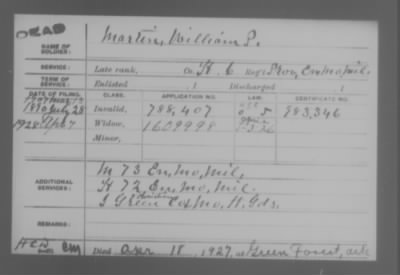 DEAD
NAME OF SOLDIER: Martin, William P.
SERVICE: Late rank, Co. H. 6 Reg't Prov, En. Mo. Mil.
TERM OF SERVICE: Enlisted , 1 Discharged , 1
DATE OF FILING. CLASS. APPLICATION NO. LAW. CERTIFICATE NO.
1890 July 28 Invalid, 788,407 983,346
1928 Apr 7 Widow, 1609998
Minor,
ADDITIONAL SERVICES: M 73 En. Mo. Mil,
H 72 En. Mo. Mil.
I Green Co. Mo. H. Gds.
REMARKS:
Died Apr 18, 1927, at Green Forest, Ark